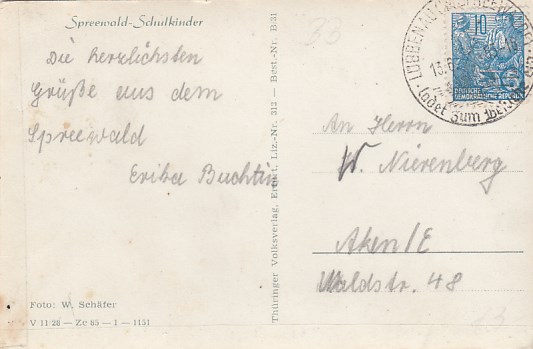 Spreewald-Schulkinder
Die herzlichsten
Grüße aus dem
Spreewald
Erika Buchtin
Foto: W. Schäfer
V 11/28 — Ze 85 — 1 — 1151
Thüringer Volksverlag, Erfurt, Liz.-Nr. 312 — Best.-Nr. B/51
33
10
DEUTSCHE
DEMOKRATISCHE REPUBLIK
LÜBBENAU
ladet zum
An Herrn
W. Nierenberg
Aken/E
Waldstr. 48
13